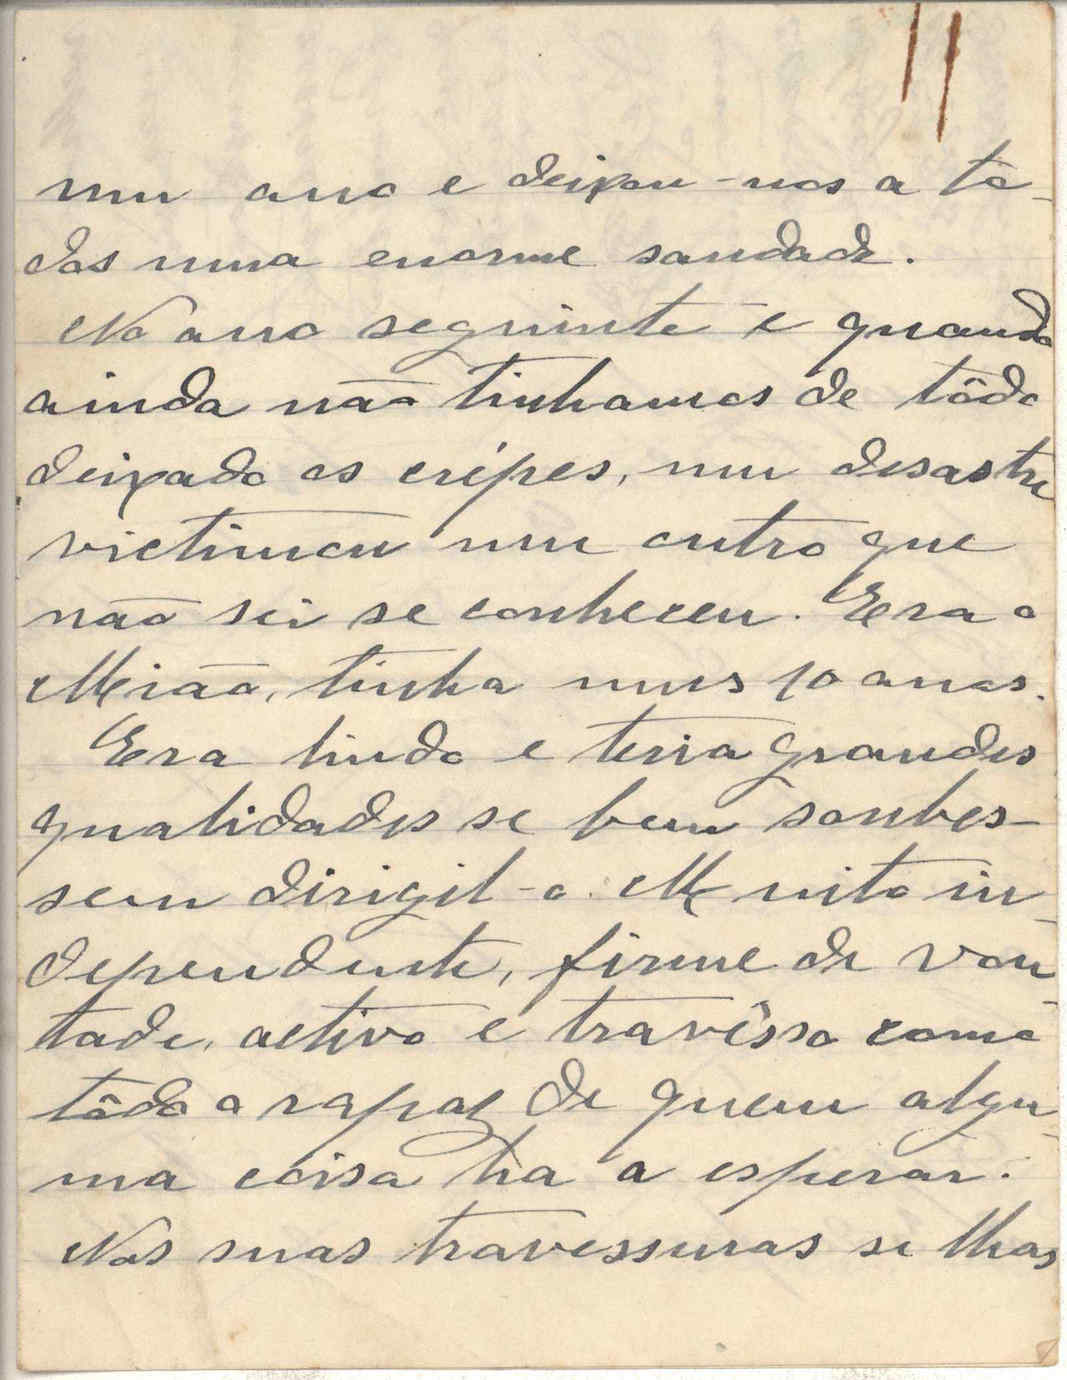 11
num ano e deixou-nos a to-
dos numa enorme saudade.
No ano seguinte e quando
ainda não tinhamos de tôdo
deixado os crépes, num desastre
victimou num outro que
não sei se conheceu. Era o
Mião, tinha uns 10 anos.
Era lindo e teria grandes
qualidades se bem soubes-
sem dirigil-o. Muito in-
dependente, firme de von-
tade, activo e travêsso como
tôdo o rapaz de quem algu-
ma coisa ha a esperar.
Nas suas travessuras se lhas